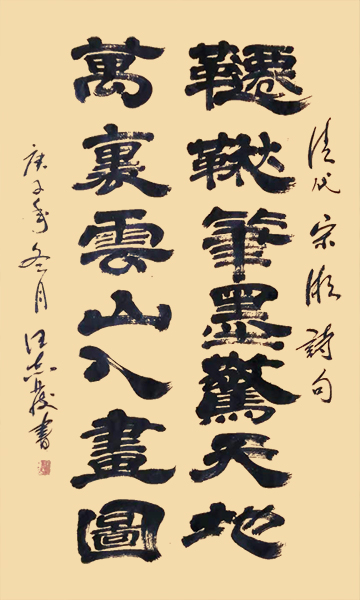 清代宋湘詩句
韆鞦筆墨驚天地
萬裏雲山入畫圖
庚子年冬月汪志書